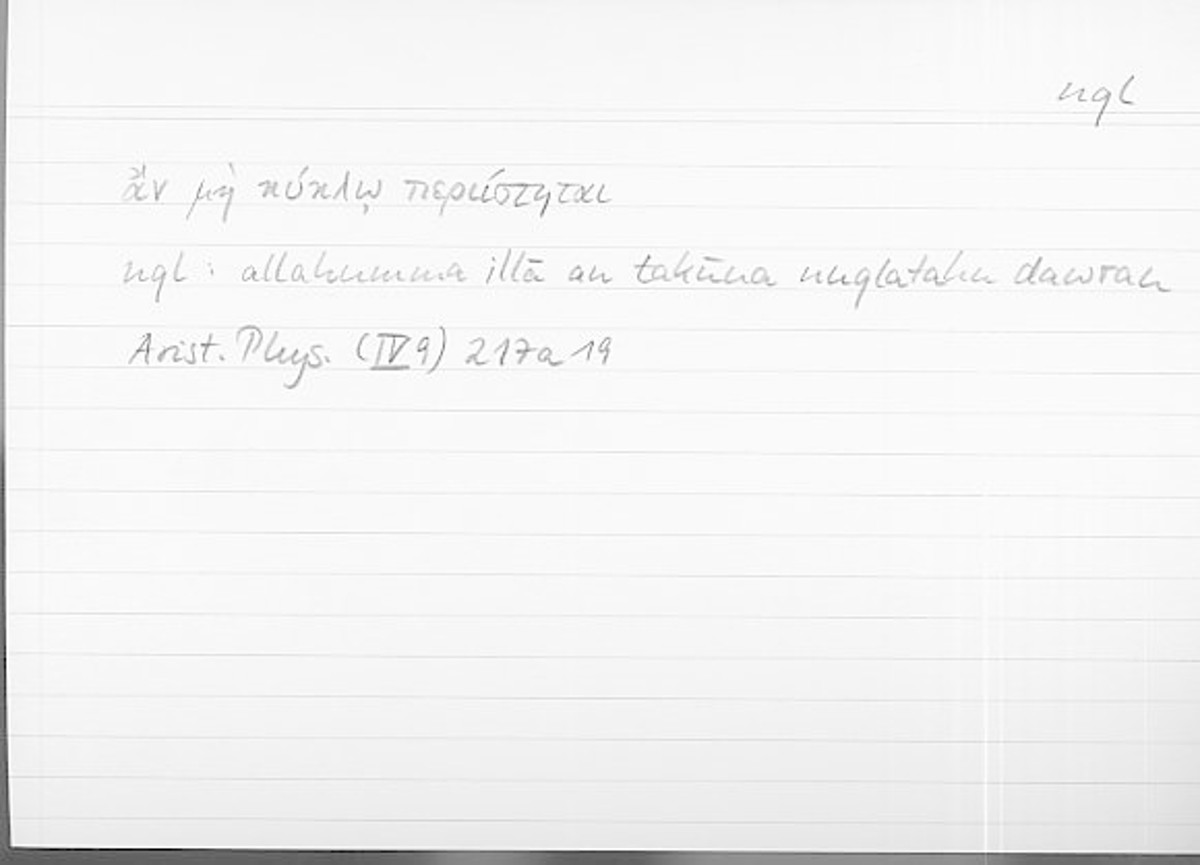 nql
ἂν μὴ κύκλῳ περιίστηται
nql : allahumma illā an takūna nuqlatahu dawran
Arist. Phys. (IV 9) 217a19